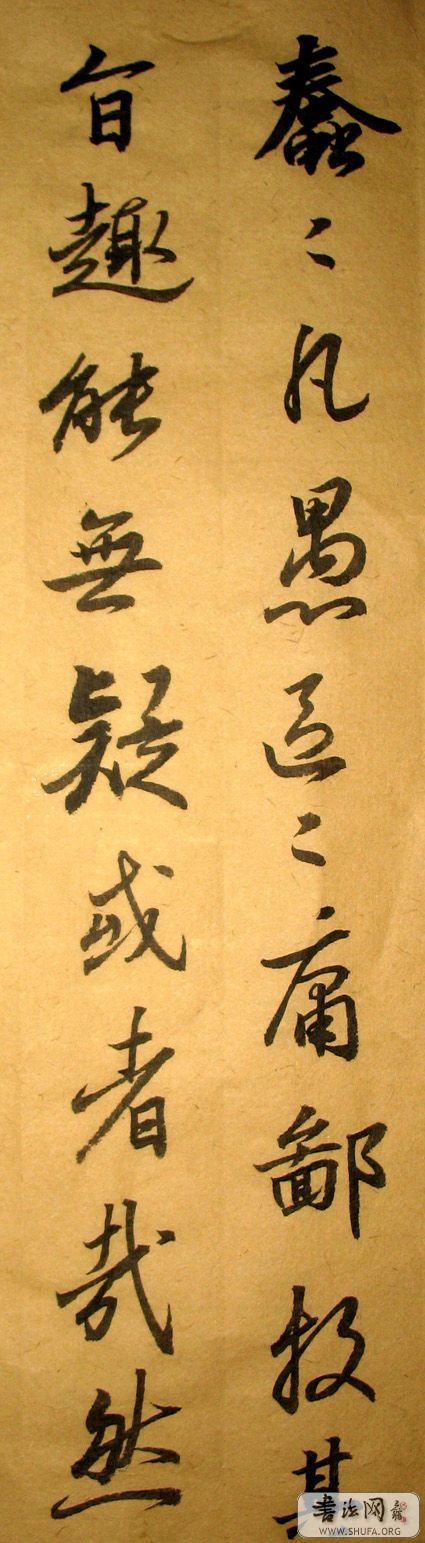 蠢〻凡愚區〻庸鄙投其
旨趣能無疑或者哉然
書法网
WWW.SHUFA.ORG